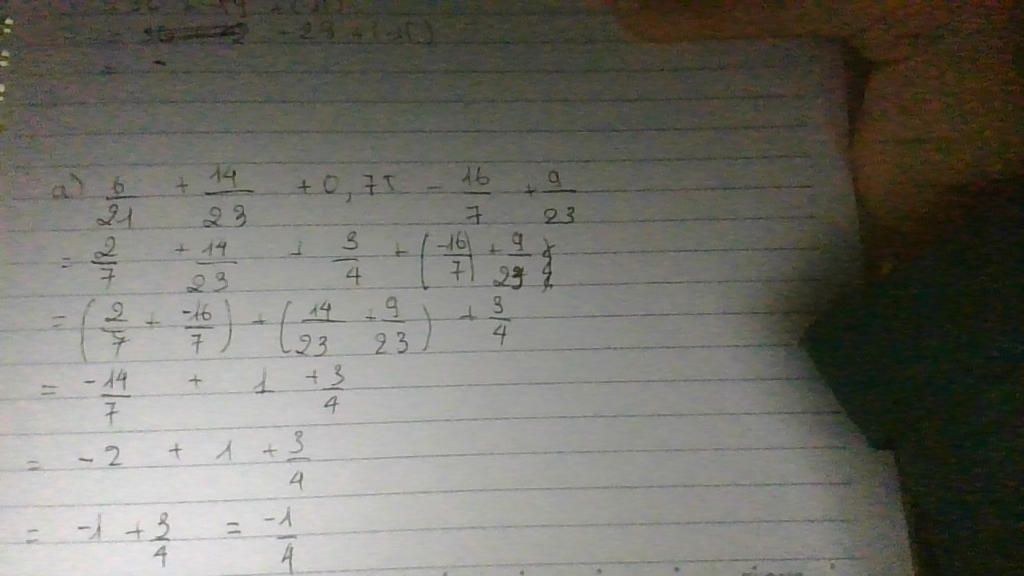 a) 6/21 + 14/23 + 0,75 - 16/7 + 9/23
= 2/7 + 14/23 + 3/4 + (-16/7) + 9/23
= (2/7 + -16/7) + (14/23 + 9/23) + 3/4
= -14/7 + 1 + 3/4
= -2 + 1 + 3/4
= -1 + 3/4 = -1/4